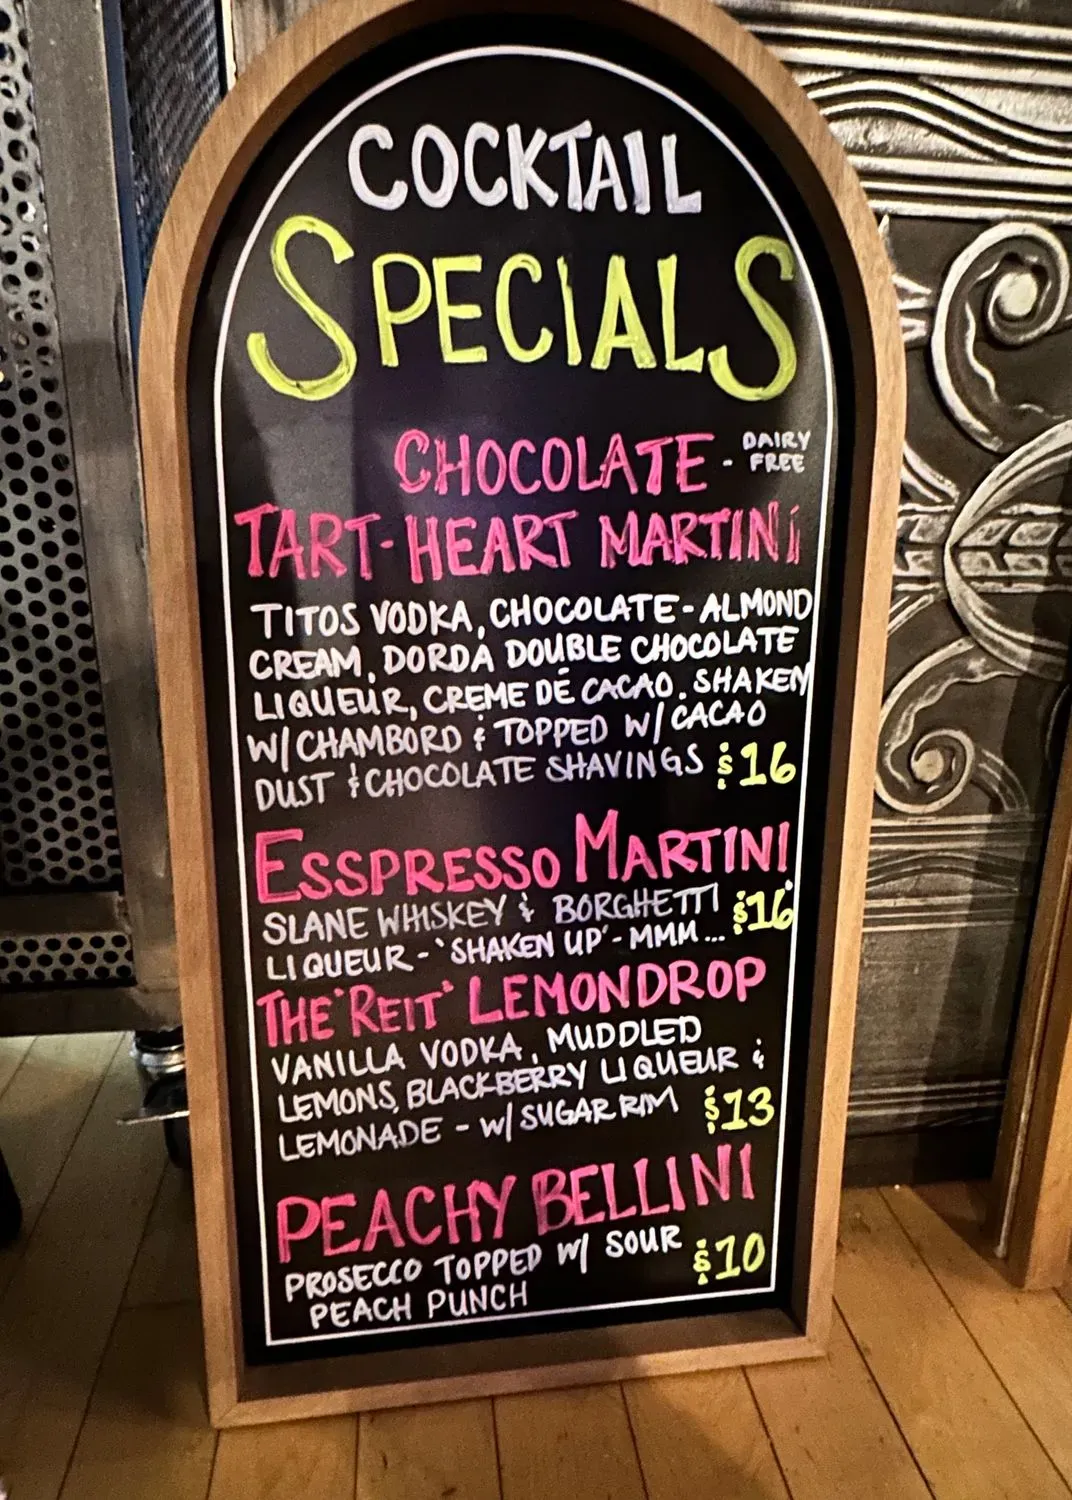 COCKTAIL
SPECIALS
CHOCOLATE - DAIRY FREE
TART-HEART MARTINi
TITOS VODKA, CHOCOLATE-ALMOND
CREAM, DORDA DOUBLE CHOCOLATE
LIQUEUR, CREME DÉ CACAO. SHAKEN
W/ CHAMBORD & TOPPED W/ CACAO
DUST & CHOCOLATE SHAVINGS $16
ESSPRESSO MARTINI
SLANE WHISKEY & BORGHETTI $16
LIQUEUR-'SHAKEN UP'-MMM...
THE "REIT" LEMONDROP
VANILLA VODKA, MUDDLED
LEMONS, BLACKBERRY LIQUEUR &
LEMONADE - W/ SUGAR RIM $13
PEACHY BELLINI
PROSECCO TOPPED W/ SOUR $10
PEACH PUNCH